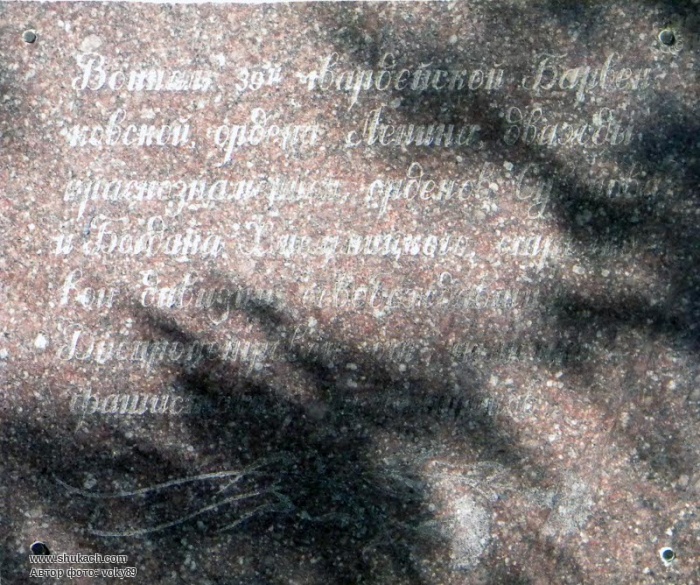 Воинам 39й гвардейской Барвен
ковской, ордена Ленина, дважды
краснознаменной, орденов Суворова
и Богдана Хмельницкого, стрелко
вой дивизии, освобождавшим
Днепропетровск от немецко
фашистских
www.shukach.com
Автор фото: voky89